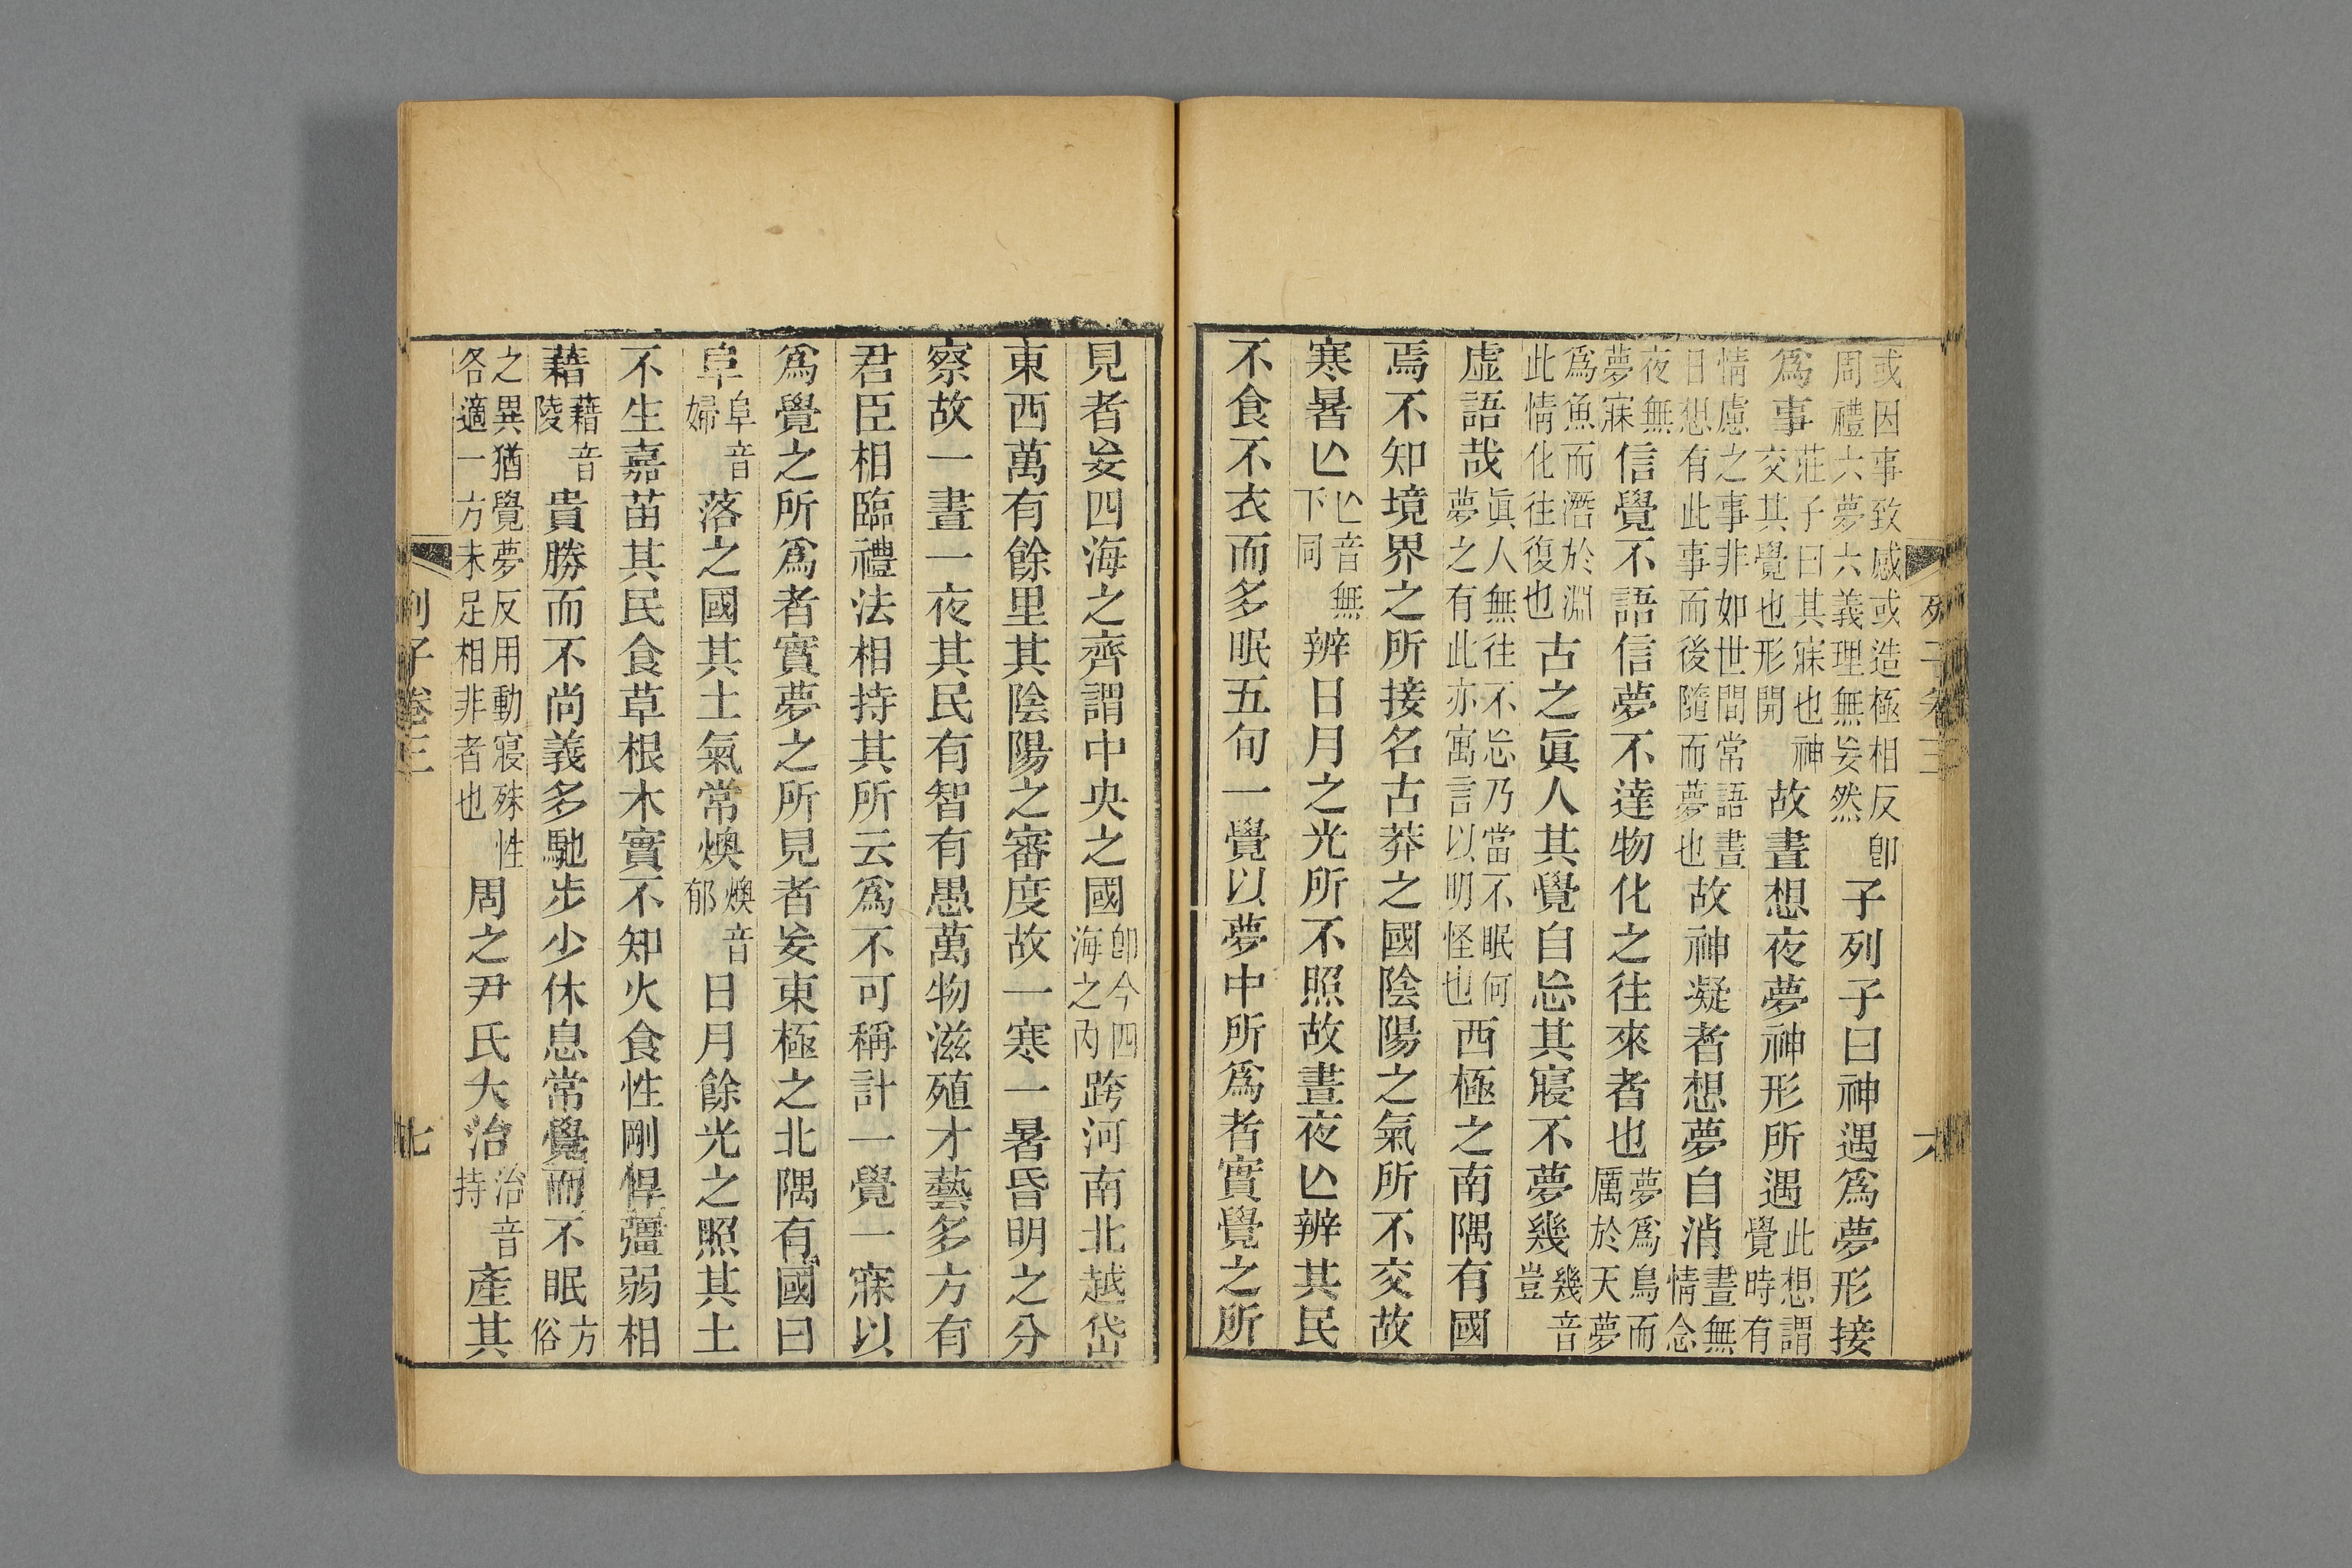 或因事致感或造極相反卽周禮六夢六義理無妄然子列子曰神遇爲夢形接
爲事莊子曰其寐也神交其覺也形開故晝想夜夢神形所遇此想謂覺時有
情慮之事非如世間常語晝日想有此事而後隨而夢也故神凝者想夢自消晝無情念
夜無夢寐信覺不語信夢不達物化之往來者也夢爲鳥而厲於天夢
爲魚而潛於淵此情化往復也古之眞人其覺自忘其寢不夢幾幾音豈
虛語哉眞人無往不忘乃當不眠何夢之有此亦寓言以明怪也西極之南隅有國
焉不知境界之所接名古莽之國陰陽之氣所不交故
寒暑亾亾音無下同辨日月之光所不照故晝夜亾辨其民
不食不衣而多眠五旬一覺以夢中所爲者實覺之所
列子卷三
六
見者妄四海之齊謂中央之國卽今四海之內跨河南北越岱
東西萬有餘里其陰陽之審度故一寒一暑昏明之分
察故一晝一夜其民有智有愚萬物滋殖才藝多方有
君臣相臨禮法相持其所云爲不可稱計一覺一寐以
爲覺之所爲者實夢之所見者妄東極之北隅有國曰
阜阜音婦落之國其土氣常燠燠音郁日月餘光之照其土
不生嘉苗其民食草根木實不知火食性剛悍彊弱相
藉藉音陵貴勝而不尚義多馳步少休息常覺而不眠方俗
之異猶覺夢反用動寢殊性各適一方未足相非者也周之尹氏大治治音持產其
列子卷三
七